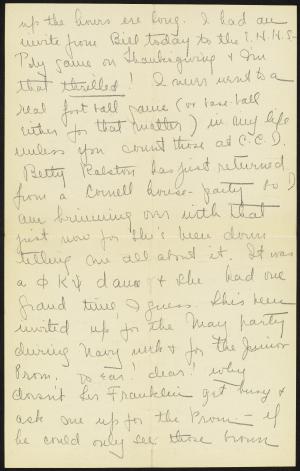 up the hours are long. I had an
invite from Bill today to the E.N.H.S-
Poly game on Thanksgiving & I'm
that thrilled! I never went to a
real foot ball game (or base-ball
either for that matter) in my life
unless you count those at C.C.D.
Betty Ralston has just returned
from a Cornell house-party so I
am brimming over with that
just now for she's been down
telling me all about it. It was
a Φ K Ψ dance & she had one
grand time, I guess. She's been
invited up for the May party
during Navy week & for the Junior
Prom. Oh dear! dear! why
doesn't Sir Franklin get busy &
ask me up for the Prom - if
he could only see those brown